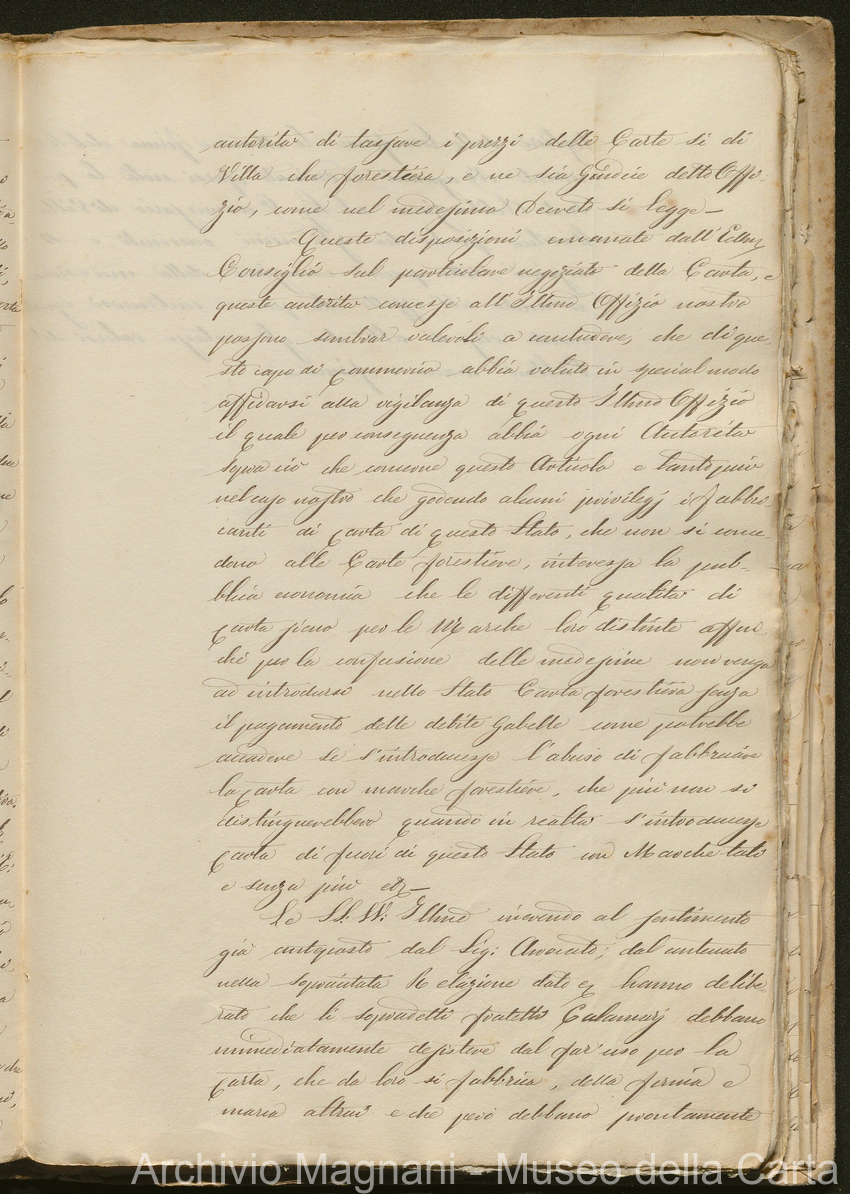 autorità di tassare i prezzi delle Carte sì di
Villa che forestiera, e ne sia Giudice detto Offi-
zio, come nel medesimo Decreto si legge —
Queste disposizioni emanate dall'
Consiglio sul particolare negoziato della Carta, e
queste autorità concesse all'Illmo Offizio nostro
possono sembrar valevoli a concludere, che di que-
sto capo di Commercio abbia voluto in special modo
affidarsi alla vigilanza di questo Illmo Offizio
il quale per conseguenza abbia ogni Autorità
sopra ciò che concerne questo Articolo e tanto più
nel caso nostro che godendo alcuni privilegj i fabbri-
canti di carta di questo Stato, che non si conce-
dono alle Carte forestiere, interessa la pub-
blica economia che le differenti qualità di
carta sieno per le Marche loro distinte affin-
chè per la confusione delle medesime non venga
ad introdursi nello Stato Carta forestiera senza
il pagamento delle debite Gabelle come potrebbe
accadere se s'introducesse l'abuso di fabbricare
la carta con marche forestiere, che più non si
distinguerebbero quando in realtà s'introducesse
carta di fuori di questo Stato con Marche tali
e senza più etc —
Le SS. VV. Illme inerendo al sentimento
già antiposto dal Sig: Avvocato; dal contenuto
nella sopracitata Relazione dato hanno delibe-
rato che li sopradetti fratelli Calamarj debbano
immediatamente desistere dal far'uso per la
carta, che da loro si fabbrica, della forma e
marca altrui e che però debbano prontamente
Archivio Magnani - Museo della Carta